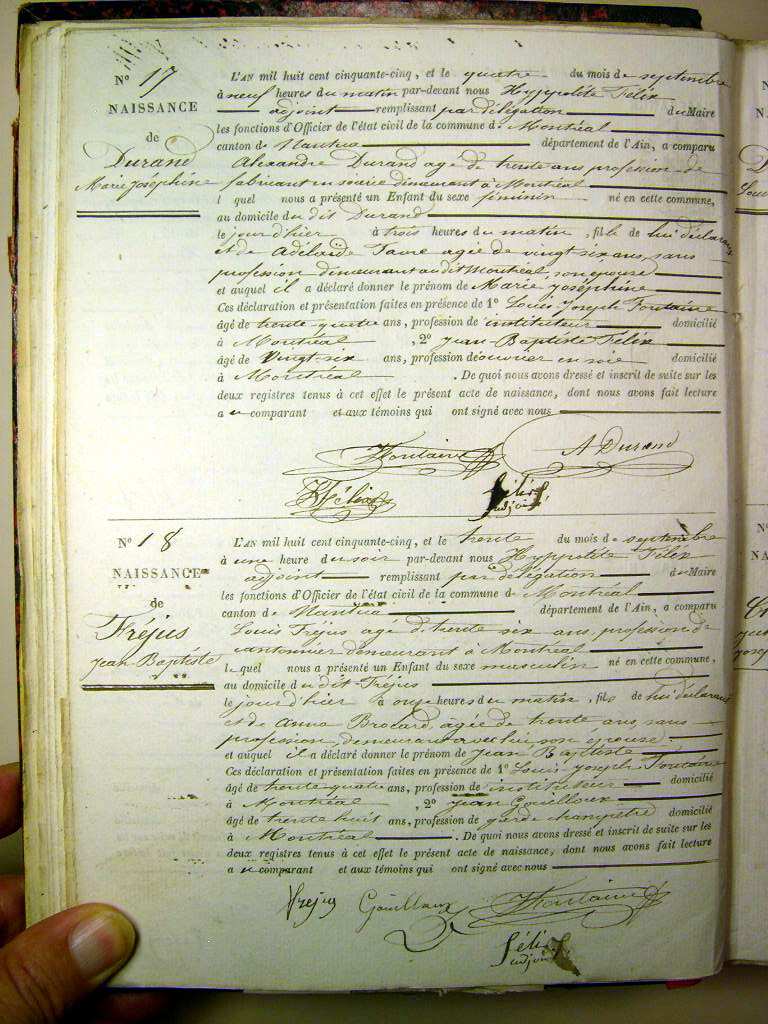 N° 17
NAISSANCE
de
Durand
Marie Joséphine
L'AN mil huit cent cinquante-cinq, et le quatre du mois de septembre
à neuf heures du matin par-devant nous Hyppolite Félix
adjoint remplissant par délégation du Maire
les fonctions d'Officier de l'état civil de la commune de Montréal
canton de Nantua département de l'Ain, a comparu
Alexandre Durand agé de trente ans profession de
fabricant en soierie demeurant à Montréal
l quel nous a présenté un Enfant du sexe féminin né en cette commune,
au domicile du dit Durand
le jour d'hier à trois heures du matin, fille de lui déclarant
et de Adélaïde Favre agée de vingt six ans, sans
profession demeurant au dit Montréal, son épouse
et auquel il a déclaré donner le prénom de Marie Joséphine
Ces déclaration et présentation faites en présence de 1° Louis Joseph Fontaine
âgé de trente quatre ans, profession de instituteur domicilié
à Montréal , 2° Jean-Baptiste Félix
âgé de Vingt-six ans, profession de ouvrier en soie domicilié
à Montréal . De quoi nous avons dressé et inscrit de suite sur les
deux registres tenus à cet effet le présent acte de naissance, dont nous avons fait lecture
a u comparant et aux témoins qui ont signé avec nous
Fontaine A Durand
Félix Félix
adjoint
N° 18
NAISSANCE
de
Fréjus
Jean-Baptiste
L'AN mil huit cent cinquante-cinq, et le trente du mois de septembre
à une heure du soir par-devant nous Hyppolite Félix
adjoint remplissant par délégation du Maire
les fonctions d'Officier de l'état civil de la commune de Montréal
canton de Nantua département de l'Ain, a comparu
Louis Fréjus agé de trente six ans, profession de
cantonnier demeurant à Montréal
le quel nous a présenté un Enfant du sexe masculin né en cette commune,
au domicile du dit Fréjus
le jour d'hier à onze heures du matin, fils de lui déclarant
et de Anna Brocard, agée de trente ans, sans
profession, demeurant avec lui son épouse
et auquel il a déclaré donner le prénom de Jean Baptiste
Ces déclaration et présentation faites en présence de 1° Louis Joseph Fontaine
âgé de trente quatre ans, profession de instituteur domicilié
à Montréal , 2° Jean Gouilloux
âgé de trente huit ans, profession de garde champêtre domicilié
à Montréal . De quoi nous avons dressé et inscrit de suite sur les
deux registres tenus à cet effet le présent acte de naissance, dont nous avons fait lecture
a u comparant et aux témoins qui ont signé avec nous
Frejus Gouilloux Fontaine
Félix
adjoint